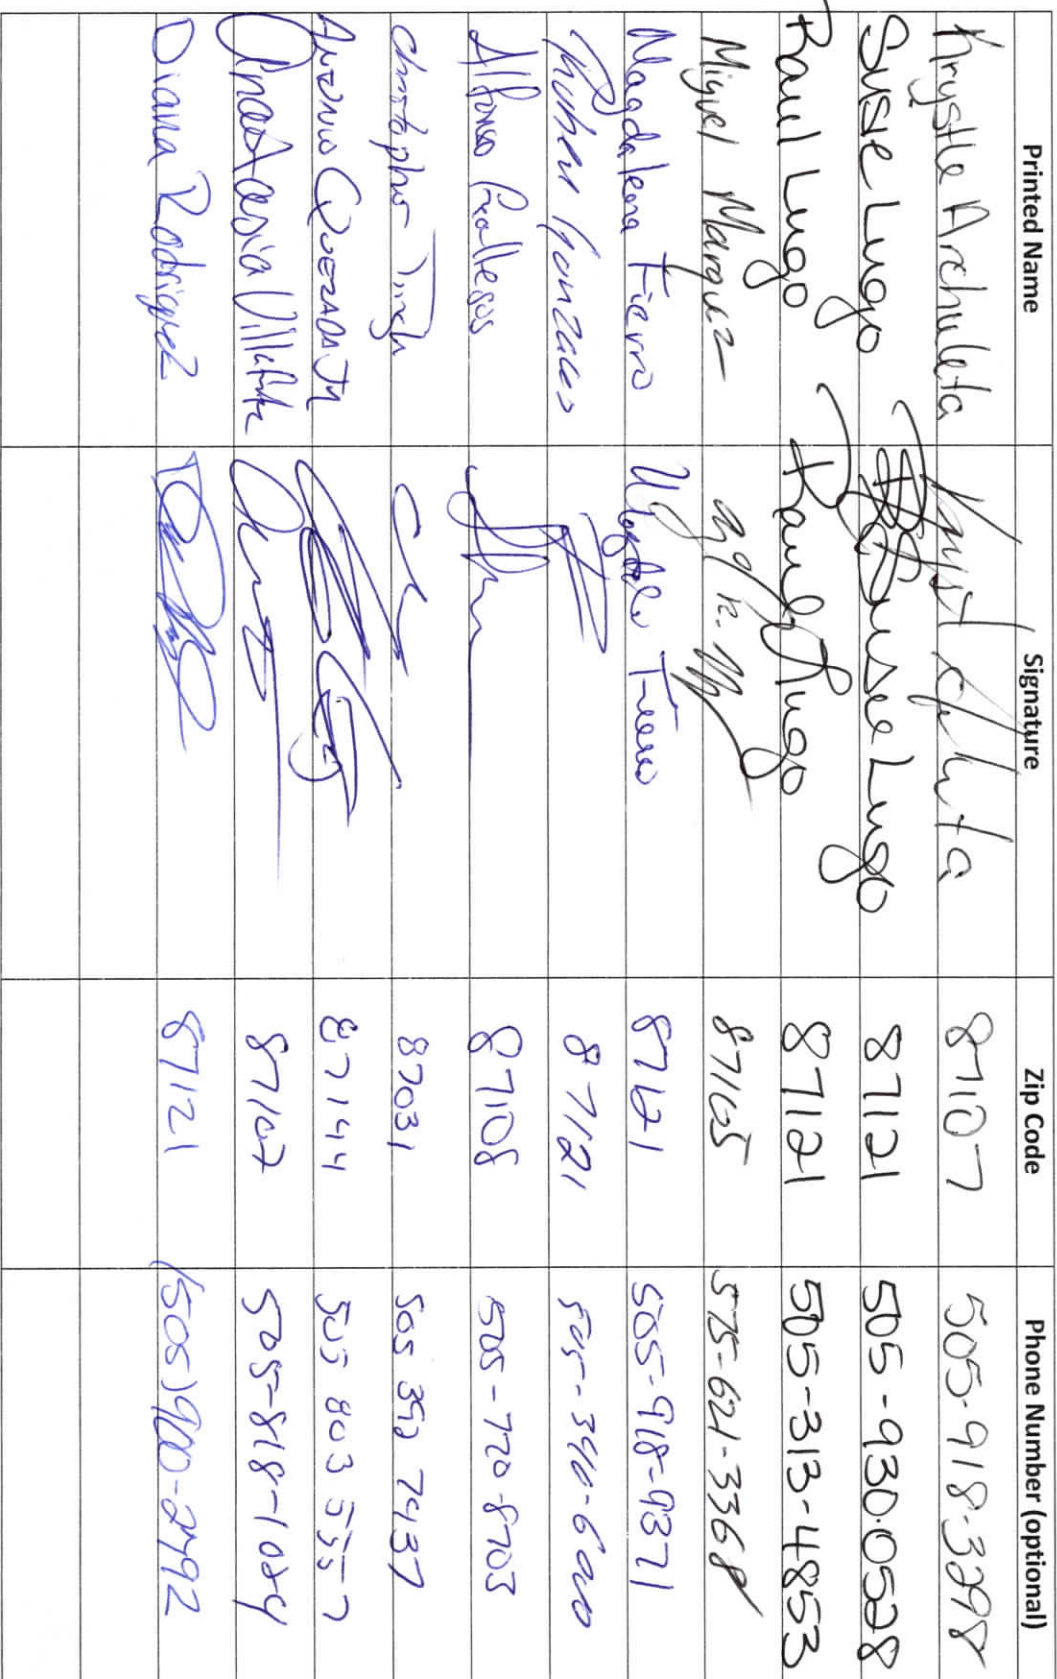 Printed Name Signature Zip Code Phone Number (optional)
Krystle Archuleta 87107 505-918-3298
Susie Lugo Susie Lugo 87121 505-930-0528
Raul Lugo Raul Lugo 87121 505-313-4853
Miguel Marquez 87105 575-621-3368
Magdalena Fierro Magdalena Fierro 87121 505-918-9371
Gonzales 87121
Alfonso Gallegos 87108 505-720-8703
Christopher 87031
Antonio Quezada Jr 87144 505 803 5357
Anastasia 87107 505-818-1084
Diana Rodriguez 87121 (505)